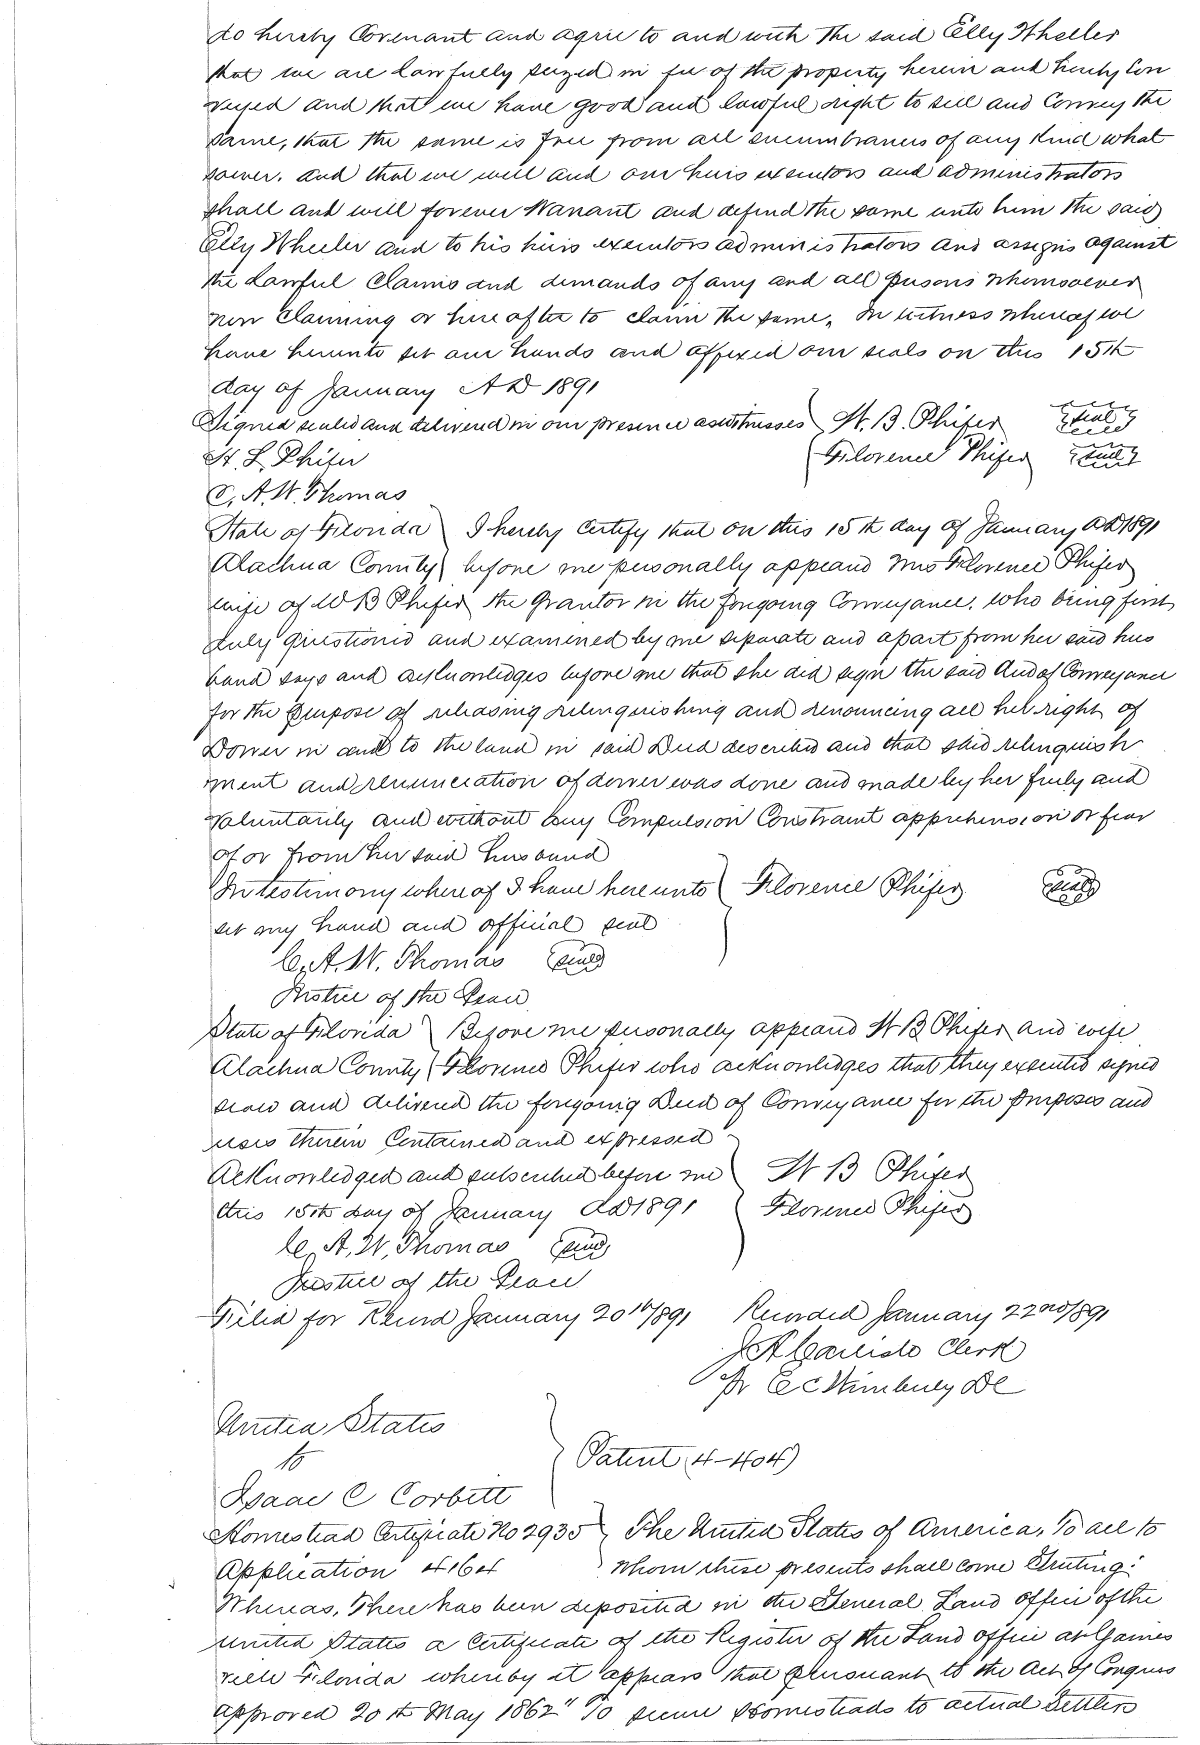 do hereby Covenant and agree to and with the said Elly Wheeler
that we are lawfully seized in fee of the property herein and hereby Con
veyed and that we have good and lawful right to sell and Convey the
same, that the same is free from all encumbrances of any kind what
soever. and that we will and our heirs executors and administrators
shall and will forever Warrant and defend the same unto him the said
Elly Wheeler and to his heirs executors administrators and assigns against
the Lawful Claims and demands of any and all persons whomsoever
now Claiming or here after to claim the same. In witness whereof we
have hereunto set our hands and affixed our seals on this 15th
day of January A D 1891
Signed sealed and delivered in our presence as witnesses W. B. Phifer seal
H. L. Phifer Florence Phifer seal
C. A. W. Thomas
State of Florida I hereby Certify that on this 15th day of January AD 1891
Alachua County before me personally appeard Mrs Florence Phifer
wife of W B Phifer the Grantor in the foregoing Conveyance. who being first
duly questioned and examined by me separate and apart from her said hus
band says and acknowledges before me that she did sign the said deed of Conveyance
for the purpose of releasing relinquishing and renouncing all her right of
Dower in and to the land in said Deed described and that said relinquish
ment and renunciation of dower was done and made by her freely and
voluntarily and without any Compulsion Constraint apprehension or fear
of or from her said husband
In testimony where of I have here unto Florence Phifer seal
set my hand and official seal
C. A. W. Thomas seal
Justice of the Peace
State of Florida Before me personally appeard W B Phifer and wife
Alachua County Florence Phifer who acknowledges that they executed signed
seald and delivered the foregoing Deed of Conveyance for the purposes and
uses therein Contained and expressed
Acknowledged and subscribed before me W B Phifer
this 15th day of January AD 1891 Florence Phifer
C. A. W. Thomas seal
Justice of the Peace
Filed for Record January 20th/891 Recorded January 22nd/891
J A Carlisle Clerk
Pr E C DC
United States
to
Patent (4-404)
Isaac C Corbett
Homestead Certificate No 2935 The United States of America, To all to
Application 4164 whom these presents shall come Greeting:
Whereas, There has been deposited in the General Land office of the
United States a Certificate of the Register of the Land office at Gaines
ville Florida whereby it appears that pursuant to the Act of Congress
approved 20th May 1862 "To secure Homesteads to actual Settlers